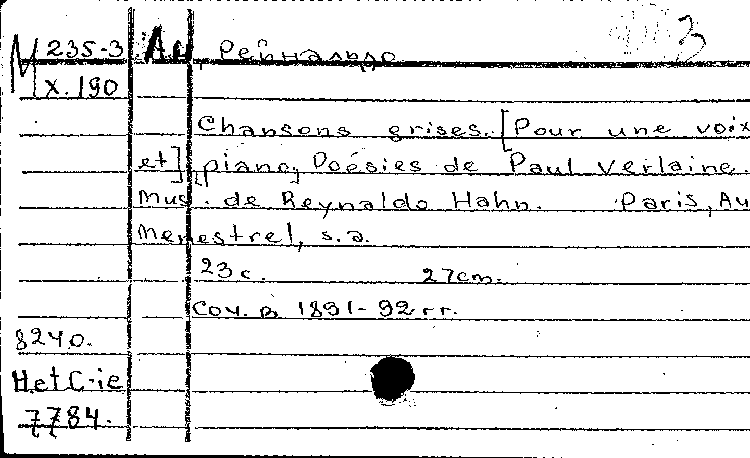 M 235-3 Ан, Рейнальдо 3
X.190
Chansons grises. [Pour une voix
et] piano, Poésies de Paul Verlaine.
Mus. de Reynaldo Hahn. Paris, Au
Menestrel, s.a.
23 c. 27 cm.
Соч. в 1891-92 гг.
8240.
H et C-ie
7784.